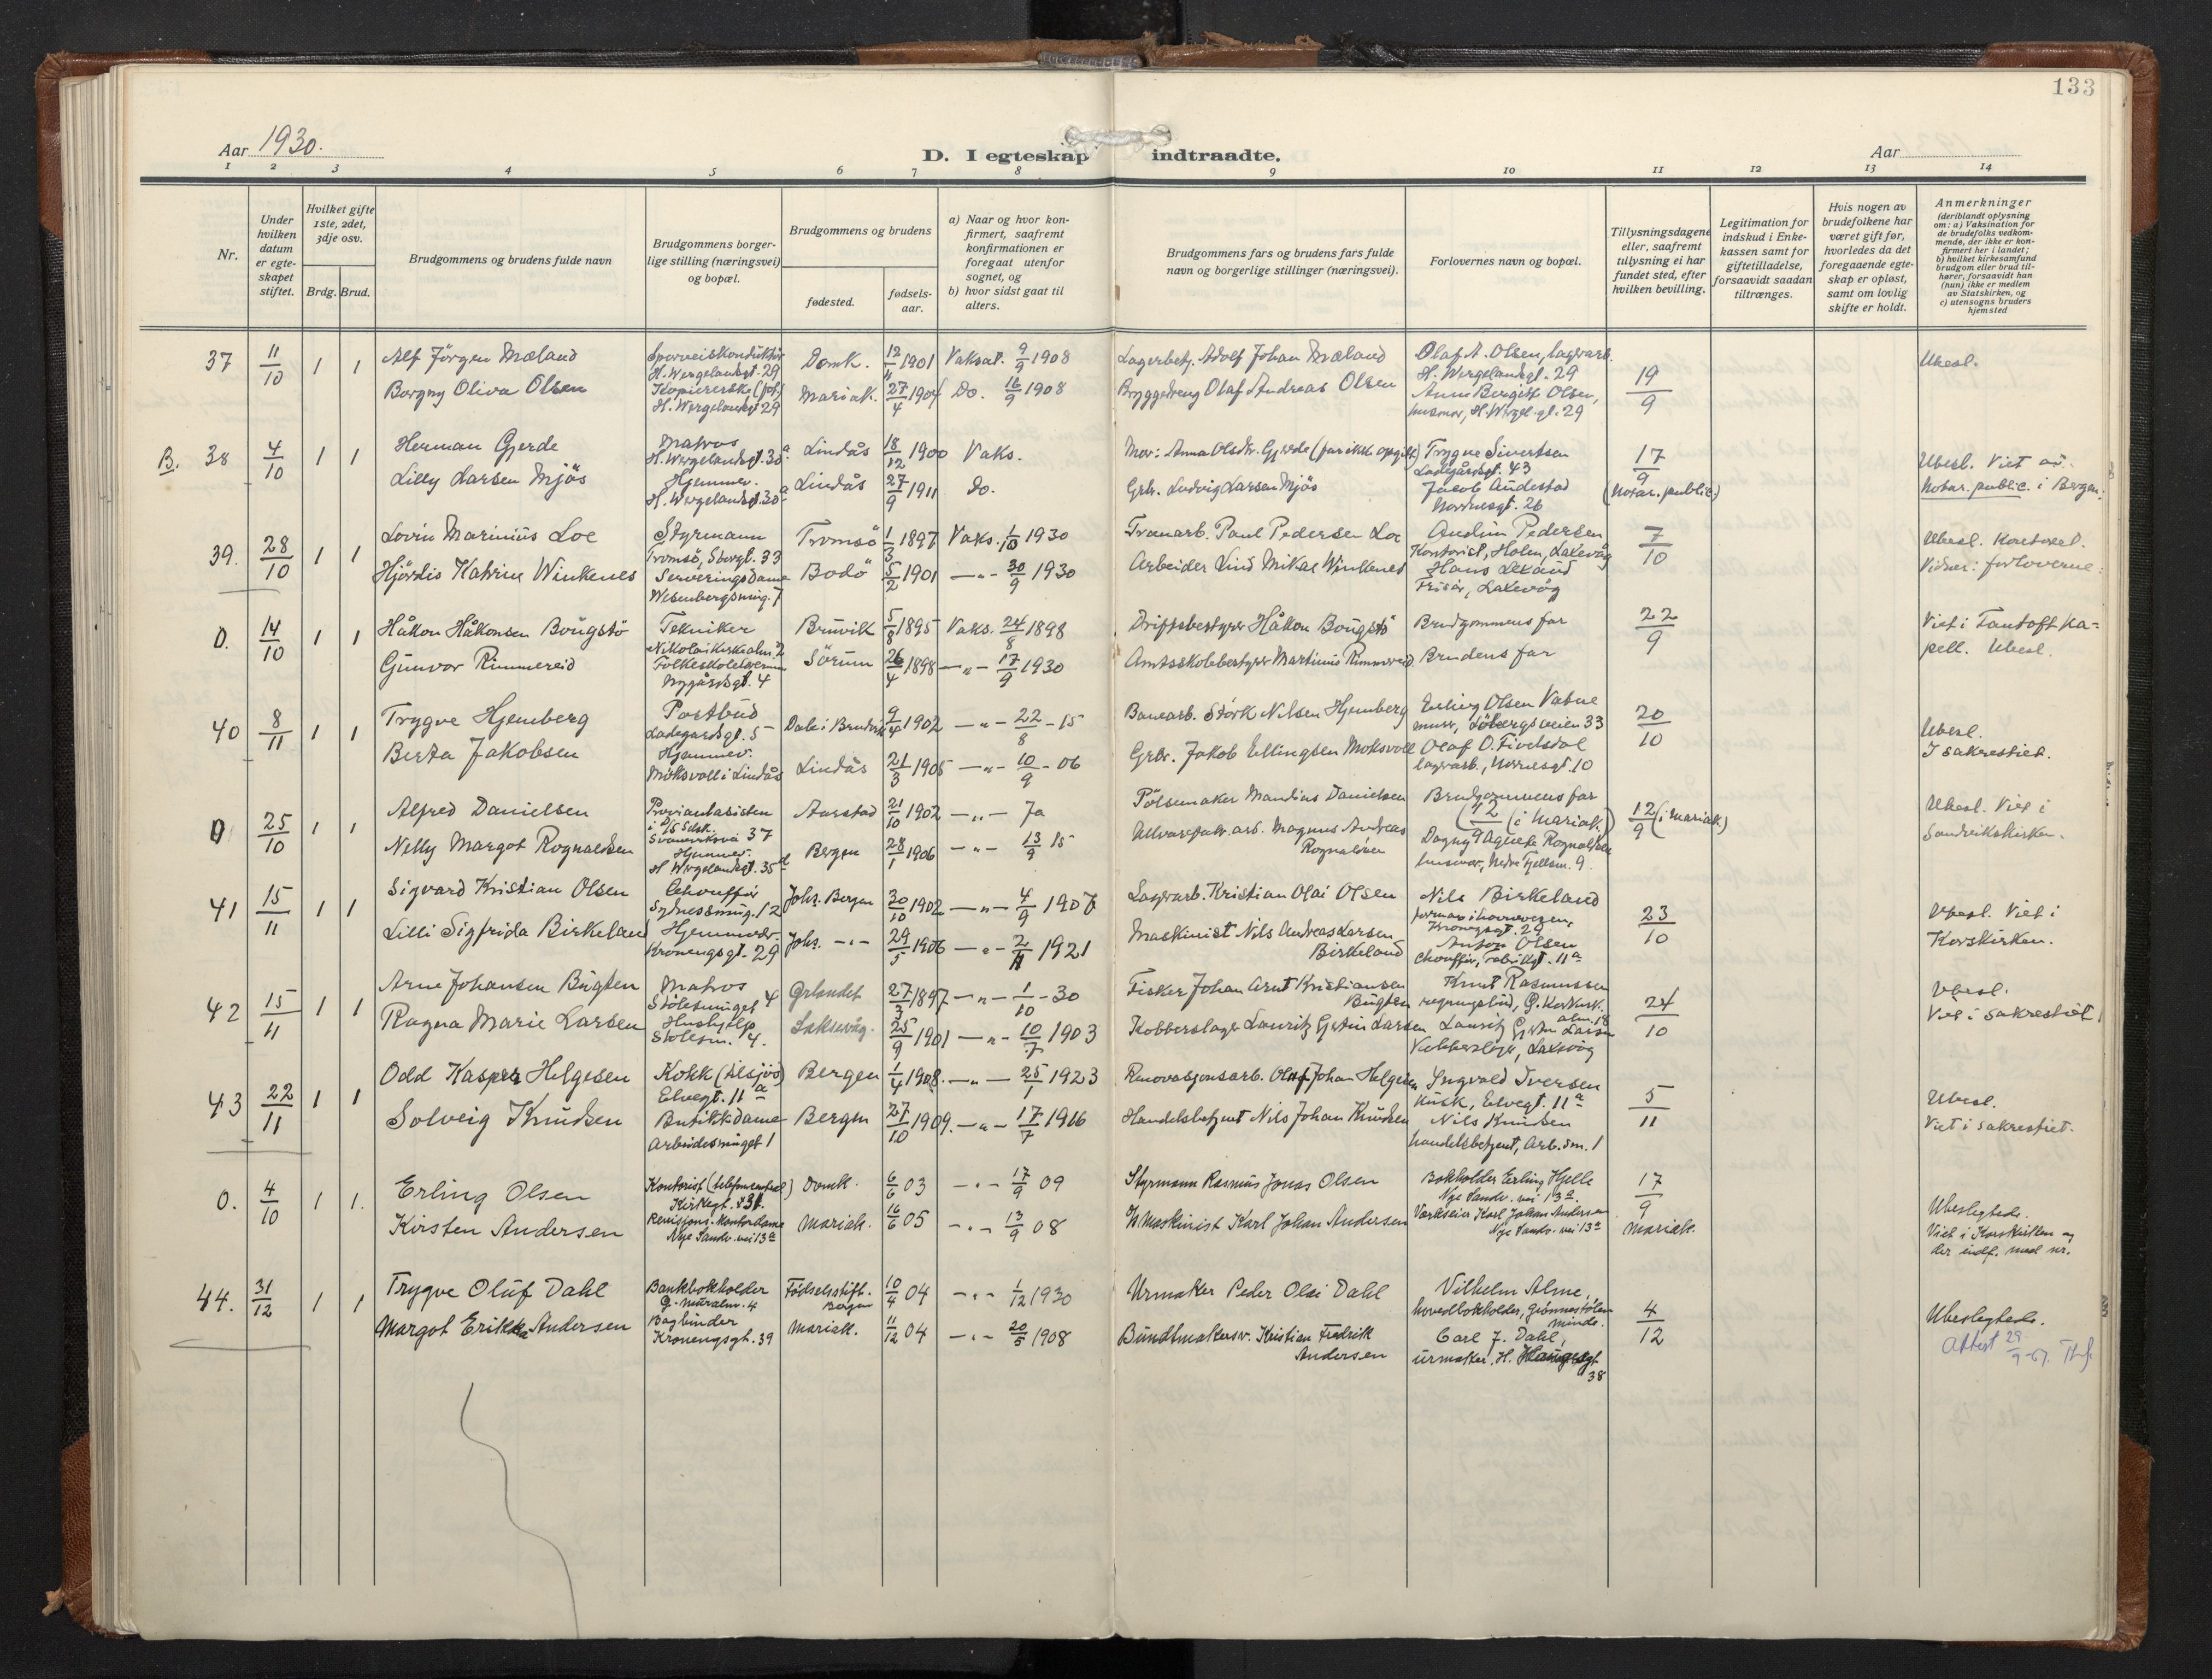 133
Aar 1930.
D. I egteskap indtraadte.
Aar
1 2 3 4 5 6 7 8 9 10 11 12 13 14
Nr.
Under hvilken datum er egteskapet stiftet.
Hvilket gifte 1ste, 2det, 3dje osv.
Brdg. Brud.
Brudgommens og brudens fulde navn
Brudgommens borgerlige stilling (næringsvei) og bopæl.
Brudgommens og brudens
fødested.
fødselsaar.
a) Naar og hvor konfirmert, saafremt konfirmationen er foregaat utenfor sognet, og
b) hvor sidst gaat til alters.
Brudgommens fars og brudens fars fulde navn og borgerlige stillinger (næringsvei).
Forlovernes navn og bopæl.
Tillysningsdagene eller, saafremt tillysning ei har fundet sted, efter hvilken bevilling.
Legitimation for indskud i Enkekassen samt for giftetilladelse, forsaavidt saadan tiltrænges.
Hvis nogen av brudefolkene har været gift før, hvorledes da det foregaaende egteskap er opløst, samt om lovlig skifte er holdt.
Anmerkninger
(deriblandt oplysning om: a) Vaksination for de brudefolks vedkommende, der ikke er konfirmert her i landet; b) hvilket kirkesamfund brudgom eller brud tilhører, forsaavidt han (hun) ikke er medlem av Statskirken, og c) utensogns bruders hjemsted
37 11/10 1 1 Alf Jörgen Mæland
Sporveiskonduktör
H. Wergelandsgt. 29
Domk. 12/11 1901 Vaksat. 9/9 1908
Lagerbetj. Adolf Johan Mæland
Olaf A. Olsen, lagerarb.
H. Wergelandsgt. 29
19/9
Ubesl.
Borgny Oliva Olsen
Kopiererske (fot)
H. Wergelandsgt 29
Mariak. 27/4 1904 Do. 16/9 1908
Bryggedreng Olaf Andreas Olsen
Anna Bergitt Olsen,
husmor, H. Wergel. gt. 29
B. 38 4/10 1 1 Herman Gjerde
Matros
H. Wergelandsgt. 30a
Lindås 18/12 1900 Vaks.
Mor: Anna Olsdtr. Gjerde (far ikke opgitt)
Trygve Sivertsen
Ladegårdsgt. 43
17/9
(Notar. public.)
Ubesl. Viet av
Notar. public. i Bergen.
Lilly Larsen Mjös
Hjemmev.
H. Wergelandsgt. 30a
Lindås 27/9 1911 do.
Grbr. Ludvig Larsen Mjös
Jacob Andestad
Nordnesgt. 26
39. 28/10 1 1 Lovin Marinius Loe
Styrmann
Tromsö, Storgt. 33
Tromsö 1/3 1897 Vaks. 1/10 1930
Tranarb. Paul Pedersen Loe
Audun Pedersen
Kontorist, Holen, Laksevåg
7/10
Ubesl. Kontoret.
Vidner: forloverne.
Hjördis Katrine Winkenes
Serveringsdame
Wesenbergsmug. 7
Bodö 5/2 1901 —"— 30/9 1930
Arbeider Lind Mikal Winkenes
Hans Lexaud
Frisör, Laksevåg
O. 14/10 1 1 Håkon Håkonsen Bougstö
Tekniker
Nikolaikirkealm. 2
Bruvik 5/8 1895 Vaks. 24/8 1898
Driftsbestyrer Håkon Bougstö
Brudgommens far
22/9
Viet i Fantoft kapell. Ubesl.
Gunvor Rimmereid
Folkeskolelærerinne
Nygårdsgt. 4
Sörum 26/4 1898 —"— 17/9 1930
Amtsskolebestyrer Martinius Rimmereid
Brudens far
40 8/11 1 1 Trygve Hjemberg
Postbud
Ladegårdsgt. 5
Dale i Bruvik 9/4 1902 —"— 22/8 - 15
Banearb. Störk Nilsen Hjemberg
Erling Olsen Vatne
murer, Löbergsveien 33
20/10
Ubesl.
I sakrestiet.
Berta Jakobsen
Hjemmev.
Moksvoll i Lindås
Lindås 21/3 1905 —"— 10/9 - 06
Grbr. Jakob Ellingsen Moksvoll
Olaf O. Fivelsdal
lagerarb., Nordnesgt. 10
O 25/10 1 1 Alfred Danielsen
Proviantasistent
i D/S Selsk.
Svaneviksvei 37
Aarstad 21/10 1902 —"— Ja
Pölsemaker Mandius Danielsen
Brudgommens far
12/9 (i Mariak.)
Ubesl. Viet i
Sandvikskirken.
Nelly Margot Rognaldsen
Hjemmev.
H Wergelandsgt. 35d
Bergen 28/1 1906 —"— 13/9 15
Ullvarefabr. arb. Magnus Andreas
Rognaldsen
Dagny Agnete Rognaldsen
husmor, Nedre Fjellsm. 9.
41 15/11 1 1 Sigvard Kristian Olsen
Chouffør
Sydnessmug. 12
Johs. Bergen 30/10 1902 —"— 4/9 1907
Lagerarb. Kristian Olai Olsen
Nils Birkeland
Kroneng.gt. 29
23/10
Ubesl. Viet i
Korskirken.
Lilli Sigfrida Birkeland
Hjemmev.
Kronengsgt. 29
Johs. —"— 29/5 1906 —"— 2/4 1921
Maskinist Nils Andreas Larsen
Birkeland
Anton Olsen
Chouffør, Fabrikgt. 11a
42 15/11 1 1 Arne Johansen Bugten
Matros
Stölesmuget 4
Ørlandet 27/3 1897 —"— 1/10 - 30
Fisker Johan Arnt Kristiansen
Bugten
Knut Rasmussen
regningsbud, G. Korskirk.
alm. 18
24/10
Ubesl.
Viet i sakrestiet
Ragna Marie Larsen
Hushjelp
Stölesm. 4.
Laksevåg. 25/9 1901 —"— 10/7 1903
Kobberslager Lauritz Gjertin Larsen
Lauritz Gjertin Larsen
Kobberslager, Laksevåg
43 22/11 1 1 Odd Kasper Helgesen
Kokk (tilsjös)
Elvegt. 11a
Bergen 1/4 1908. —"— 25/1 1923
Renovasjonsarb. Oluf Johan Helgesen
Yngvald Iversen
Kusk, Elvegt. 11a
5/11
Ubesl.
Viet i sakrestiet.
Solveig Knudsen
Butikkdame
Arbeidersmuget 1
Bergen 27/10 1909. —"— 17/7 1916
Handelsbetjent Nils Johan Knudsen
Nils Knudsen
handelsbetjent, Arb. sm. 1
O. 4/10 1 1. Erling Olsen
Kontorist (telefoncentral)
Kirkegt.
Domk. 6/6 03 —"— 17/9 09
Styrmann Rasmus Jonas Olsen
Bokholder Erling Hjelle
Nye Sandv. vei 13a.
17/9
Mariak.
Ubeslegtede.
Viet i Korskirken og
der indf. med nr.
Kirsten Andersen
Revisjons-Kontordame
Nye Sandv. vei 13a
Mariak. 16/6 05 —"— 13/9 08
Maskinist Karl Johan Andersen
Verkseier Karl Johan Andersen
Nye Sandv. vei 13a
44. 31/12 1 1 Trygve Oluf Dahl
Bankbokholder
G. Muralm. 4
Fødselsstift.
Bergen
10/4 04 —"— 1/12 1930
Urmaker Peder Olai Dahl
Vilhelm Alme,
hovedbokholder,
minde.
4/12
Ubeslegtede.
Attest 29/9 -67.
Margot Erikka Andersen
Bogbinder
Kronengsgt. 39
Mariak. 11/12 04 —"— 20/5 1908
Bundtmakersv. Kristian Fredrik
Andersen
Carl J. Dahl,
urmaker, H. Haugesgt.
38